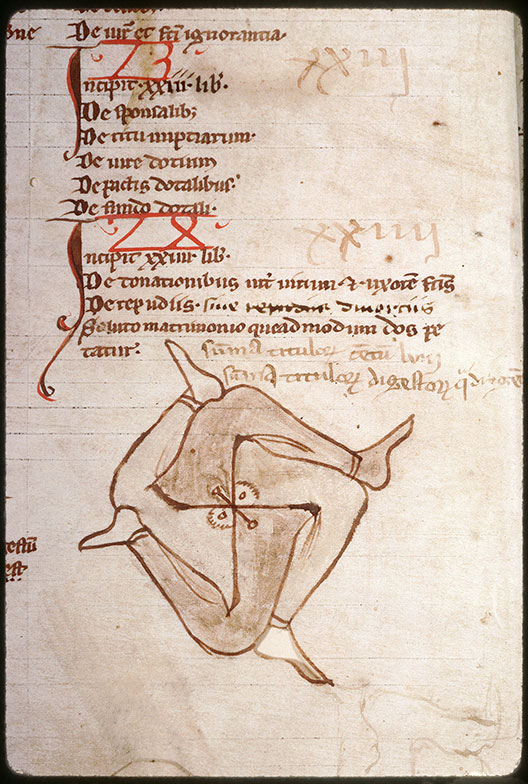 De iur et fcti ignorantia.
23
xxiij
Incipit xxiii lib.
De sponsalib;
De ritu nuptiarum.
De iure dotium
De pactis dotalibus.
De fundo dotali.
28
xxiiij
Incipit xxiiii lib.
De donationibus int uirum & uxorem fctis
De repudiis. siue diuorciis
Soluto matrimonio queadmodum dos pe
tatur.
suma titulor
suma titulor digestor